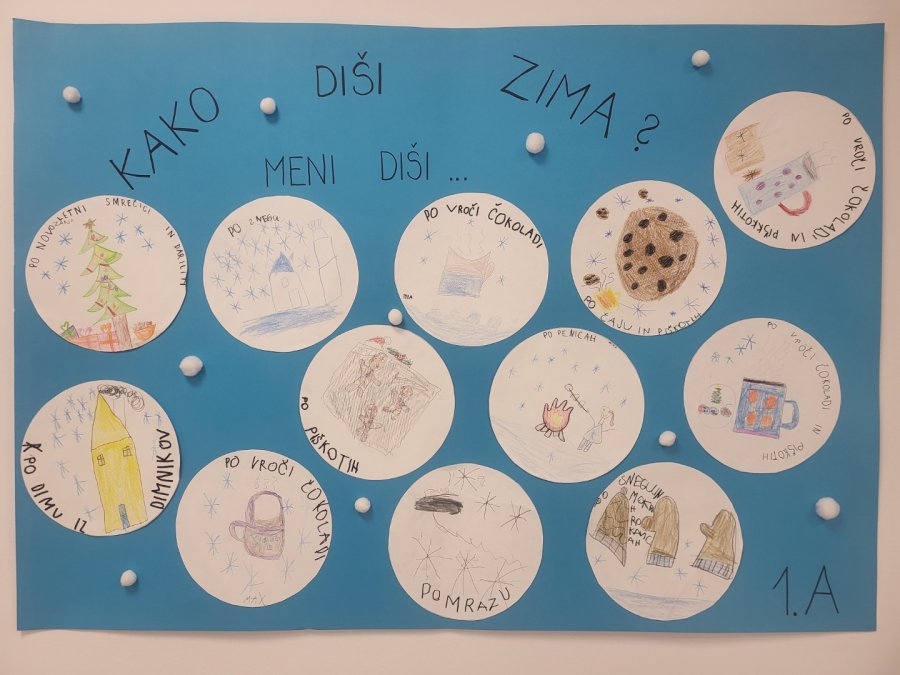 KAKO DIŠI ZIMA?
MENI DIŠI ...
PO NOVOLETNI SMREČICI IN DARILIH
PO SNEGU
PO VROČI ČOKOLADI
PO ČAJU IN PIŠKOTIH
PO VROČI ČOKOLADI IN PIŠKOTIH
PO PIŠKOTIH
PO PENICAH
PO VROČI ČOKOLADI IN PIŠKOTIH
PO DIMU IZ DIMNIKOV
PO VROČI ČOKOLADI
MAX
PO MRAZU
PO SNEGU IN MOKRIH ROKAVICAH
1.A